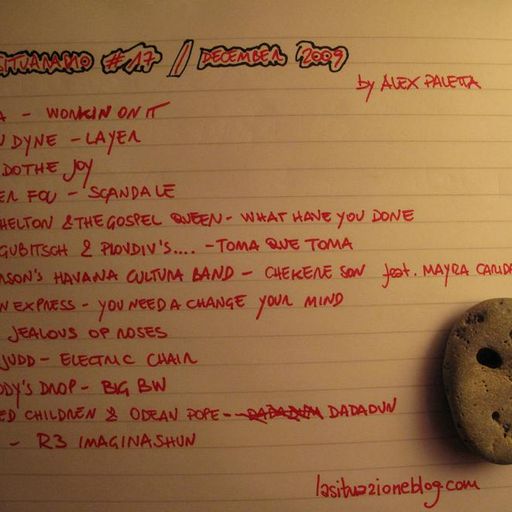 SITUANASIO #17 // DECEMBER 2009
by ALEX PALETTA
A - WORKIN ON IT
N DYNE - LAYER
DOTHE JOY
ER FOU - SCANDALE
HELTON & THE GOSPEL QUEEN - WHAT HAVE YOU DONE
GUBITSCH & PLOVDIV'S.... - TOMA QUE TOMA
RSON'S HAVANA CULTURA BAND - CHEKERE SON feat. MAYRA CARIDA
N EXPRESS - YOU NEED A CHANGE YOUR MIND
JEALOUS OF ROSES
JUDD - ELECTRIC CHAIR
DDY'S DROP - BIG BW
ED CHILDREN & ODEAN POPE - DADADUN
- R3 IMAGINASHUN
lasituazioneblog.com